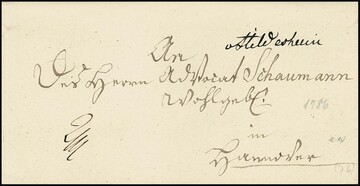 v Hildesheim
An
Des Herrn Advocat Schaumann
Wohlgeb:
1786
in
Hannover